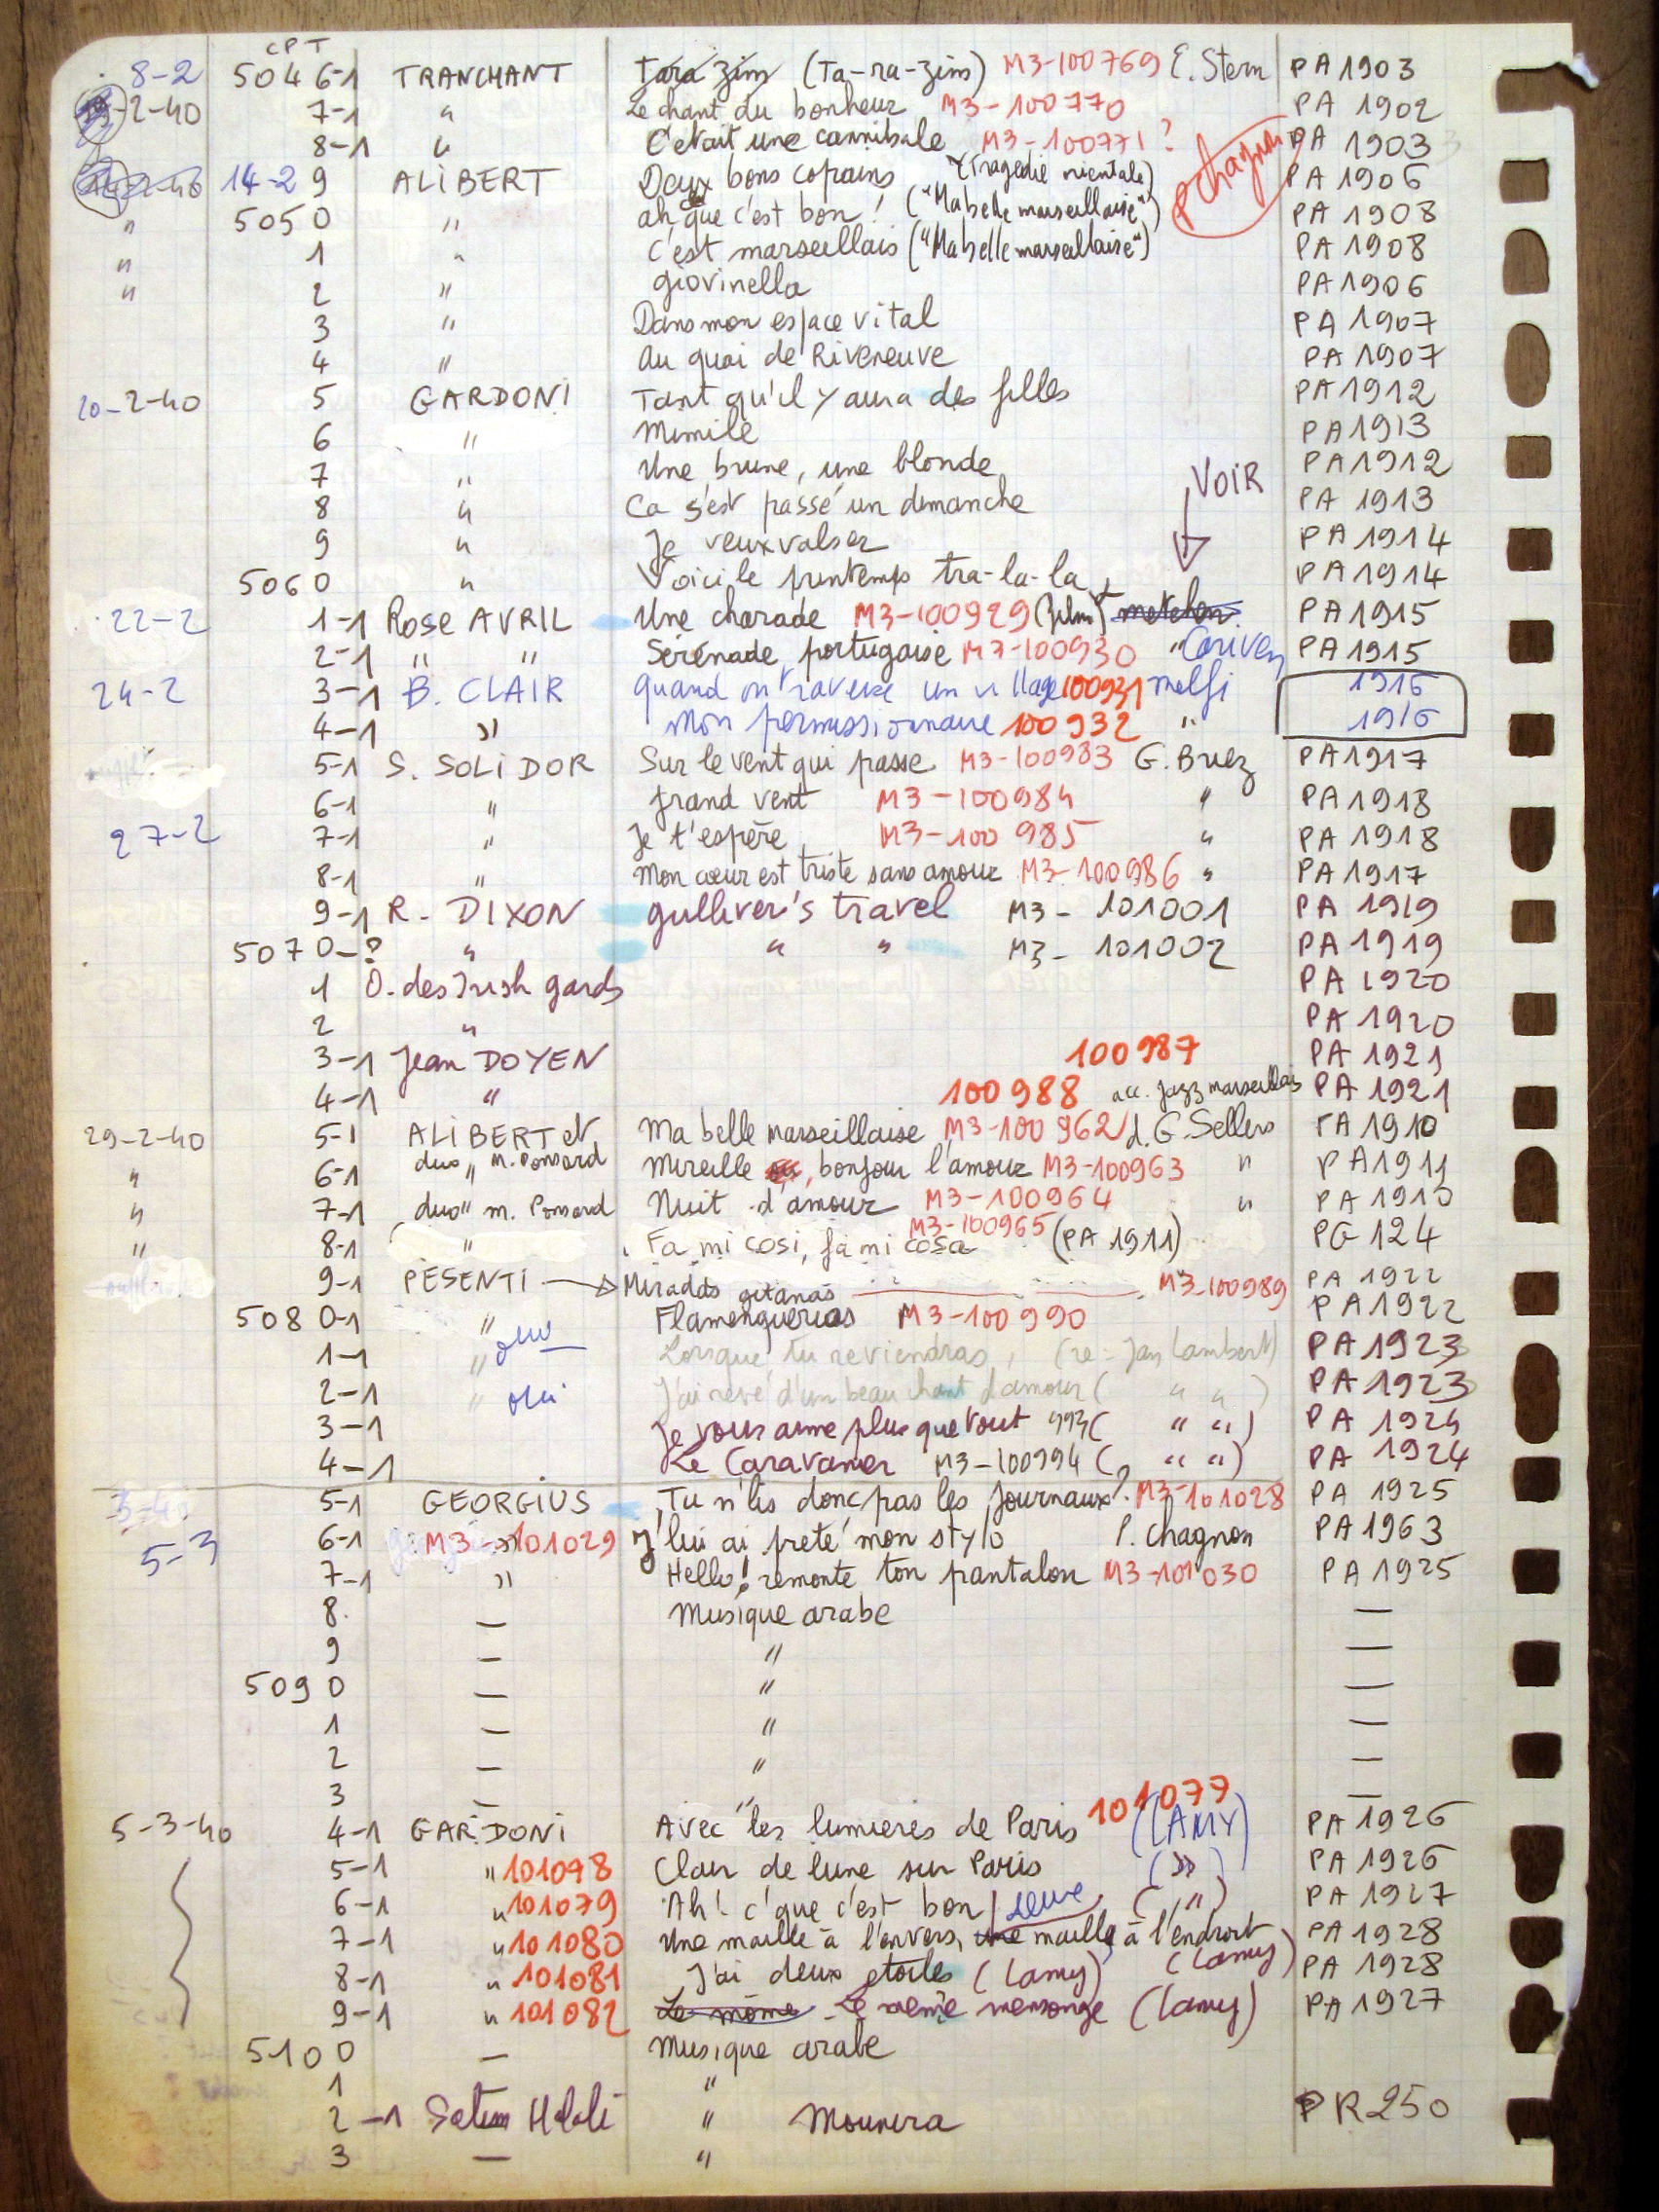 CPT
8-2 5046-1 TRANCHANT Tara Zim (Ta-ra-Zim) M3-100769 E. Stern PA 1903
-2-40 7-1 " Le chant du bonheur M3-100770 PA 1902
8-1 " C'était une cannibale M3-100771 ? PA 1903
14-2 9 ALIBERT Deux bons copains (Tragedie orientale) P chagnon PA 1906
" 5050 " ah, que c'est bon! ("Ma belle marseillaise") PA 1908
" 1 " C'est marseillais ("Ma belle marseillaise") PA 1908
" 2 " giovinella PA 1906
3 " Dans mon espace vital PA 1907
4 " au quai de Riveneuve PA 1907
20-2-40 5 GARDONI Tant qu'il y aura des filles PA 1912
6 " Mimile PA 1913
7 " Une brune, une blonde PA 1912
VOIR
8 " Ca s'est passé un dimanche PA 1913
9 " Je veux valser PA 1914
5060 " Voici le printemps tra-la-la PA 1914
22-2 1-1 Rose AVRIL Une charade M3-100929 (film) PA 1915
2-1 " " Sérénade portugaise M7-100930 " Cariven PA 1915
24-2 3-1 B. CLAIR quand on traverse un village 100931 melfi 1916
4-1 " Mon permissionnaire 100932 " 1916
5-1 S. SOLIDOR Sur le vent qui passe M3-100983 G. Briez PA 1917
6-1 " grand vent M3-100984 " PA 1918
27-2 7-1 " Je t'espère M3-100985 " PA 1918
8-1 " Mon cœur est triste sans amour M3-100986 " PA 1917
9-1 R. DIXON gulliver's travel M3-101001 PA 1919
5070-? " " " M3-101002 PA 1919
1 O. des Irish gards PA 1920
2 " PA 1920
3-1 Jean DOYEN 100987 PA 1921
4-1 " 100988 acc. Jazz marseillais PA 1921
29-2-40 5-1 ALIBERT et Ma belle marseillaise M3-100962 d. G. Sellers PA 1910
" 6-1 duo " M. Ponsard Mireille, bonjour l'amour M3-100963 " PA 1911
" 7-1 duo " m. Ponsard Nuit d'amour M3-100964 " PA 1910
" 8-1 " Fa mi cosi, fa mi cosa M3-100965 (PA 1911) PG 124
9-1 PESENTI → Miradas gitanas M3-100989 PA 1922
5080-1 " Flamenguerias M3-100990 PA 1922
1-1 " oui Lorsque tu reviendras, (re-Jan Lambert) PA 1923
2-1 " oui J'ai rêvé d'un beau chant d'amour ( " " ) PA 1923
3-1 Je vous aime plus que tout 993 ( " " ) PA 1924
4-1 Le Caravanier M3-100994 ( " " ) PA 1924
3-40 5-1 GEORGIUS Tu n'lis donc pas les journaux?. M3-101028 PA 1925
5-3 6-1 M3-101029 J'lui ai prêté mon stylo P. Chagnon PA 1963
7-1 " Hello! remonte ton pantalon M3-101030 PA 1925
8. — Musique arabe —
9 — " —
5090 — " —
1 — " —
2 — " —
3 — " —
5-3-40 4-1 GARDONI Avec les lumières de Paris 101077 (LAMY) PA 1926
5-1 " 101098 Clair de lune sur Paris ( " ) PA 1926
6-1 " 101079 Ah! c'que c'est bon ( " ) PA 1927
7-1 " 101080 Une maille à l'envers, une maille à l'endroit (Lamy) PA 1928
8-1 " 101081 J'ai deux etoiles (Lamy) PA 1928
9-1 " 101082 Le môme Le même mensonge (Lamy) PA 1927
5100 — Musique arabe
1 "
2-1 Salim Halali " Mounira PR 250
3 — "